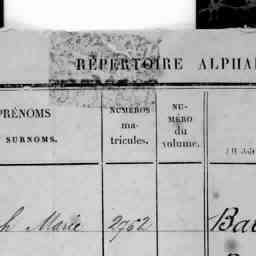 RÉPERTOIRE ALPHA
PRÉNOMS
SURNOMS.
NUMÉROS
ma-
tricules.
NU-
MÉRO
du
volume.
h Marie 2762 Ba